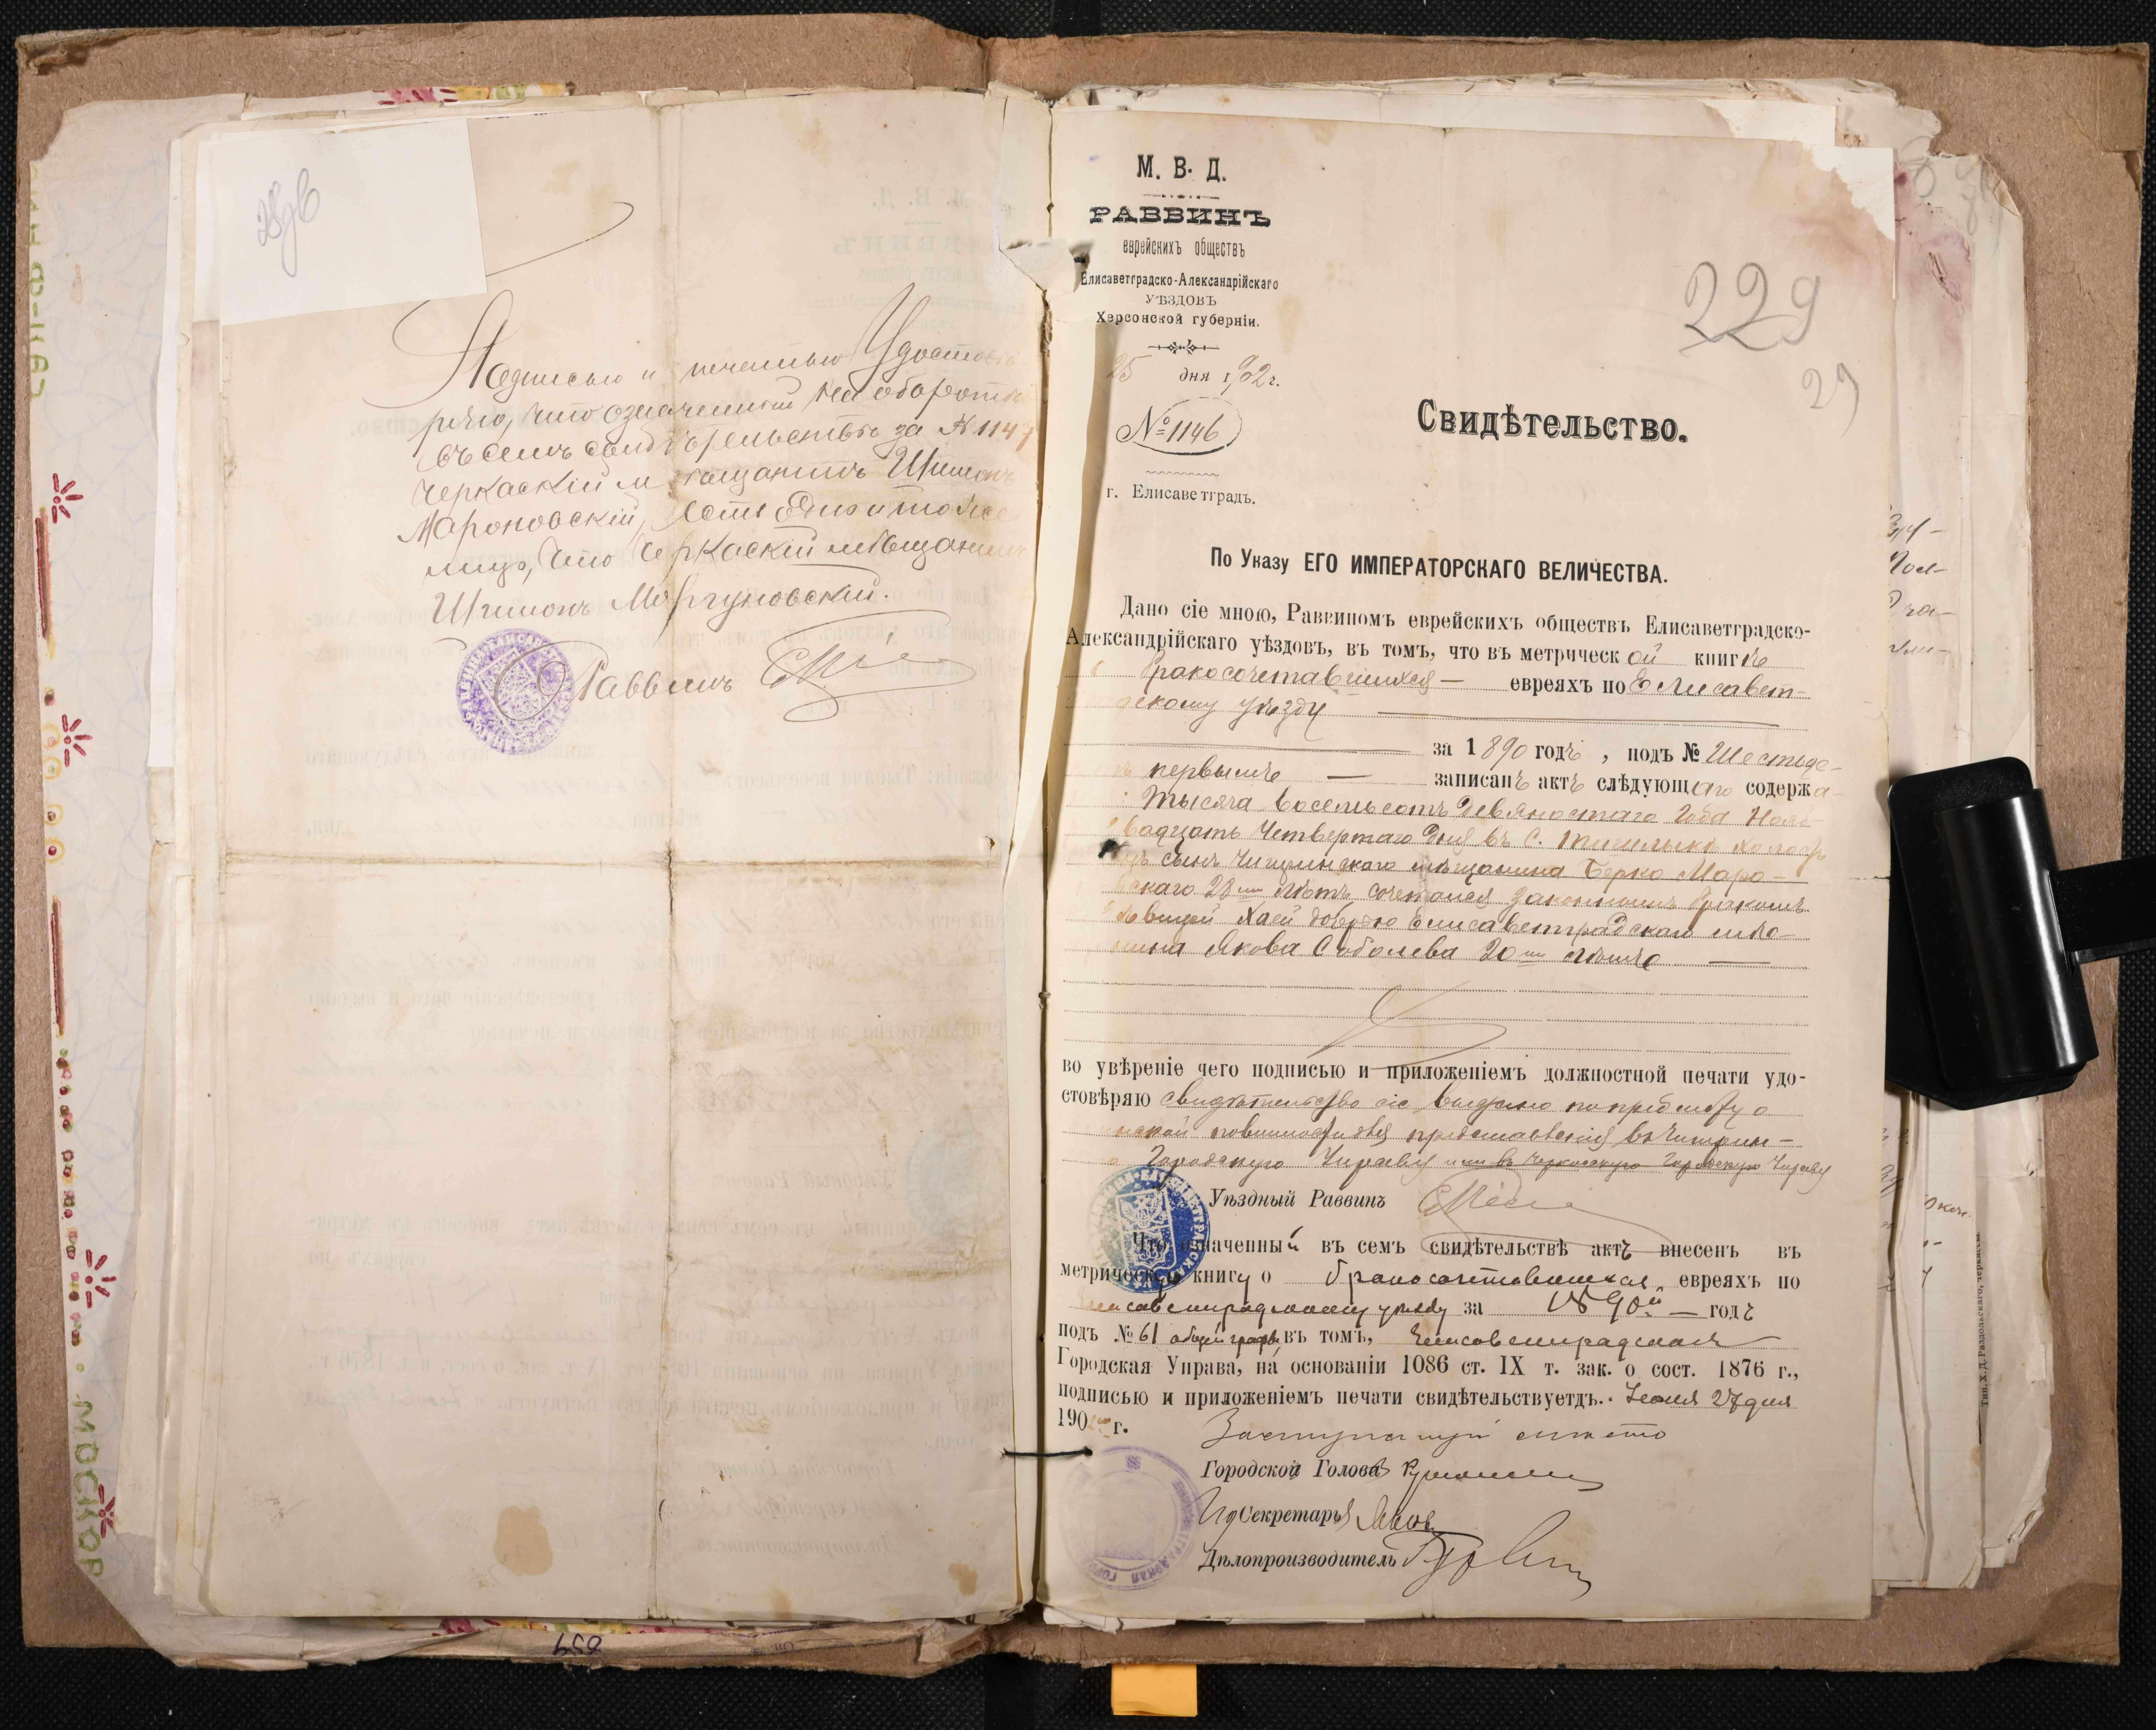 28об
Подписью и печатью Удостовѣ
ряю, что означенный на оборотѣ
въ семъ свидѣтельствѣ за № 1147
Черкаскій мѣщанинъ Шимонъ
Мароновскій, есть одно и тоже
лицо, что Черкаскій мѣщанинъ
Шимонъ Моргуновскій.
Раввинъ
М. В. Д.
РАВВИНЪ
еврейскихъ обществъ
Елисаветградско-Александрійскаго
УѢЗДОВЪ
Херсонской губерніи.
25 дня 1902 г.
№ 1146
г. Елисаветградъ.
229
29
Свидѣтельство.
По Указу ЕГО ИМПЕРАТОРСКАГО ВЕЛИЧЕСТВА.
Дано сіе мною, Раввиномъ еврейскихъ обществъ Елисаветградско-
Александрійскаго уѣздовъ, въ томъ, что въ метрической книгѣ
бракосочетавшихся — евреяхъ по Елисавет-
дскому уѣзду
за 1890 годъ, подъ № Шестьде-
первымъ — записанъ актъ слѣдующаго содержа-
Тысяча восемьсотъ девяностаго года Нояб-
вадцать четвертаго дня въ С. холост
сынъ Чигиринскаго мѣщанина Берко Маро-
скаго 28 ми лѣтъ сочетался законнымъ бракомъ
ѣвицей Хаей дочерью Елисаветградскаго мѣщ-
нина Якова Соболева 20 ти лѣтъ —
во увѣреніе чего подписью и приложеніемъ должностной печати удо-
стовѣряю свидѣтельство сіе выдано по предмету о
нской повинности для представленія въ Чигирин-
Городскую Управу или въ Черкасскую Городскую Управу
Уѣздный Раввинъ
Что означенный въ семъ свидѣтельствѣ актъ внесенъ въ
метрическую книгу о бракосочетавшихся евреяхъ по
Елисаветградскому уѣзду за 1890 й — годъ
подъ № 61 общей графы въ томъ, Елисаветградская
Городская Управа, на основаніи 1086 ст. IX т. зак. о сост. 1876 г.,
подписью и приложеніемъ печати свидѣтельствуетъ. Іюня 27 дня
190 г.
Заступающій мѣсто
Городской Головы
Ид Секретаря
Дѣлопроизводитель
МОСКОВ
659